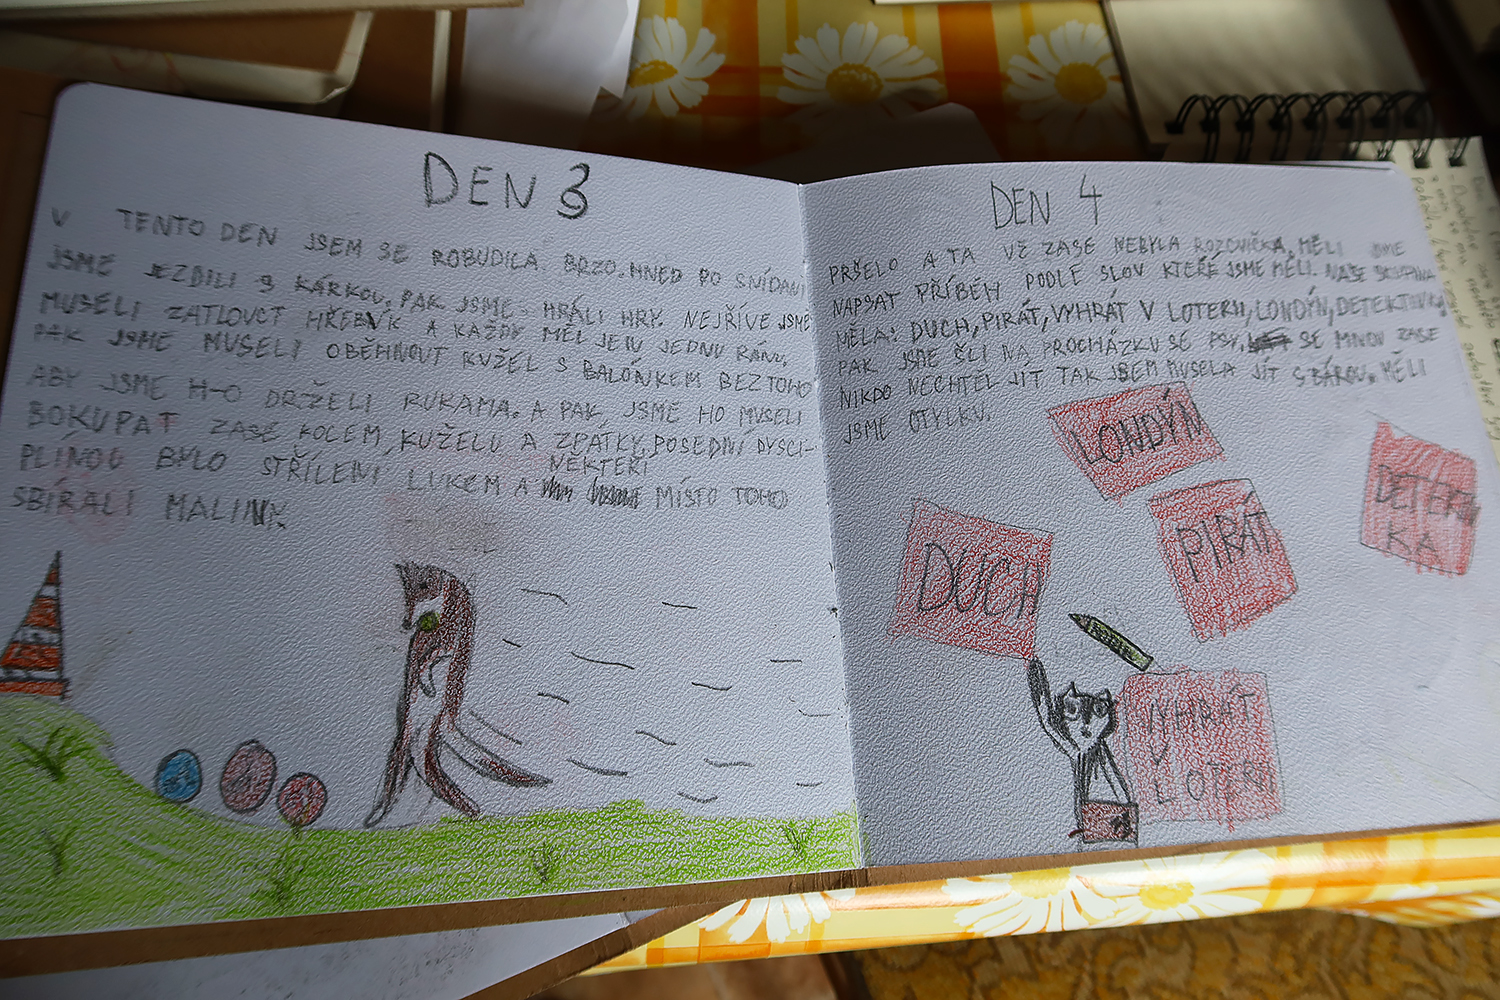 DEN 3
V TENTO DEN JSEM SE ROBUDILA BRZO. HNED PO SNÍDANI
JSME JEZDILI S KÁRKOU. PAK JSME HRÁLI HRY. NEJŘÍVE JSME
MUSELI ZATLOUCT HŘEBÝK A KAŽDY MĚL JEN JEDNU RÁNU.
PAK JSME MUSELI OBĚHNOUT KUŽEL S BALÓNKEM BEZ TOHO
ABY JSME H-O DRŽELI RUKAMA. A PAK, JSME HO MUSELI
DOKUPAT ZASE KOLEM, KUŽELU A ZPÁTKY. POSEDNÍ DYSCI-
PLÍNOU BYLO STŘÍLENI LUKEM A NĚKTEŘI MÍSTO TOHO
SBÍRALI MALINY.
DEN 4
PRŠELO A TA UŽ ZASE NEBYLA ROZCVIČKA, MĚLI JSME
NAPSAT PŘÍBĚH PODLE SLOV KTEŘÉ JSME MĚLI. NAŠE SKUPINKA
MĚLA: DUCH, PIRÁT, VYHRÁT V LOTERII, LONDÝN, DETEKTIVKA
PAK JSME ŠLI NA PROCHÁZKU SE PSY. SE MNOU ZASE
NIKDO NECHTĚL JÍT TAK JSEM MUSELA JÍT S BÁROU. MĚLI
JSME OTYLKU.
LONDÝN
DUCH
PIRÁT
DETEKTIV
KA
VYHRÁT
V
LOTERI